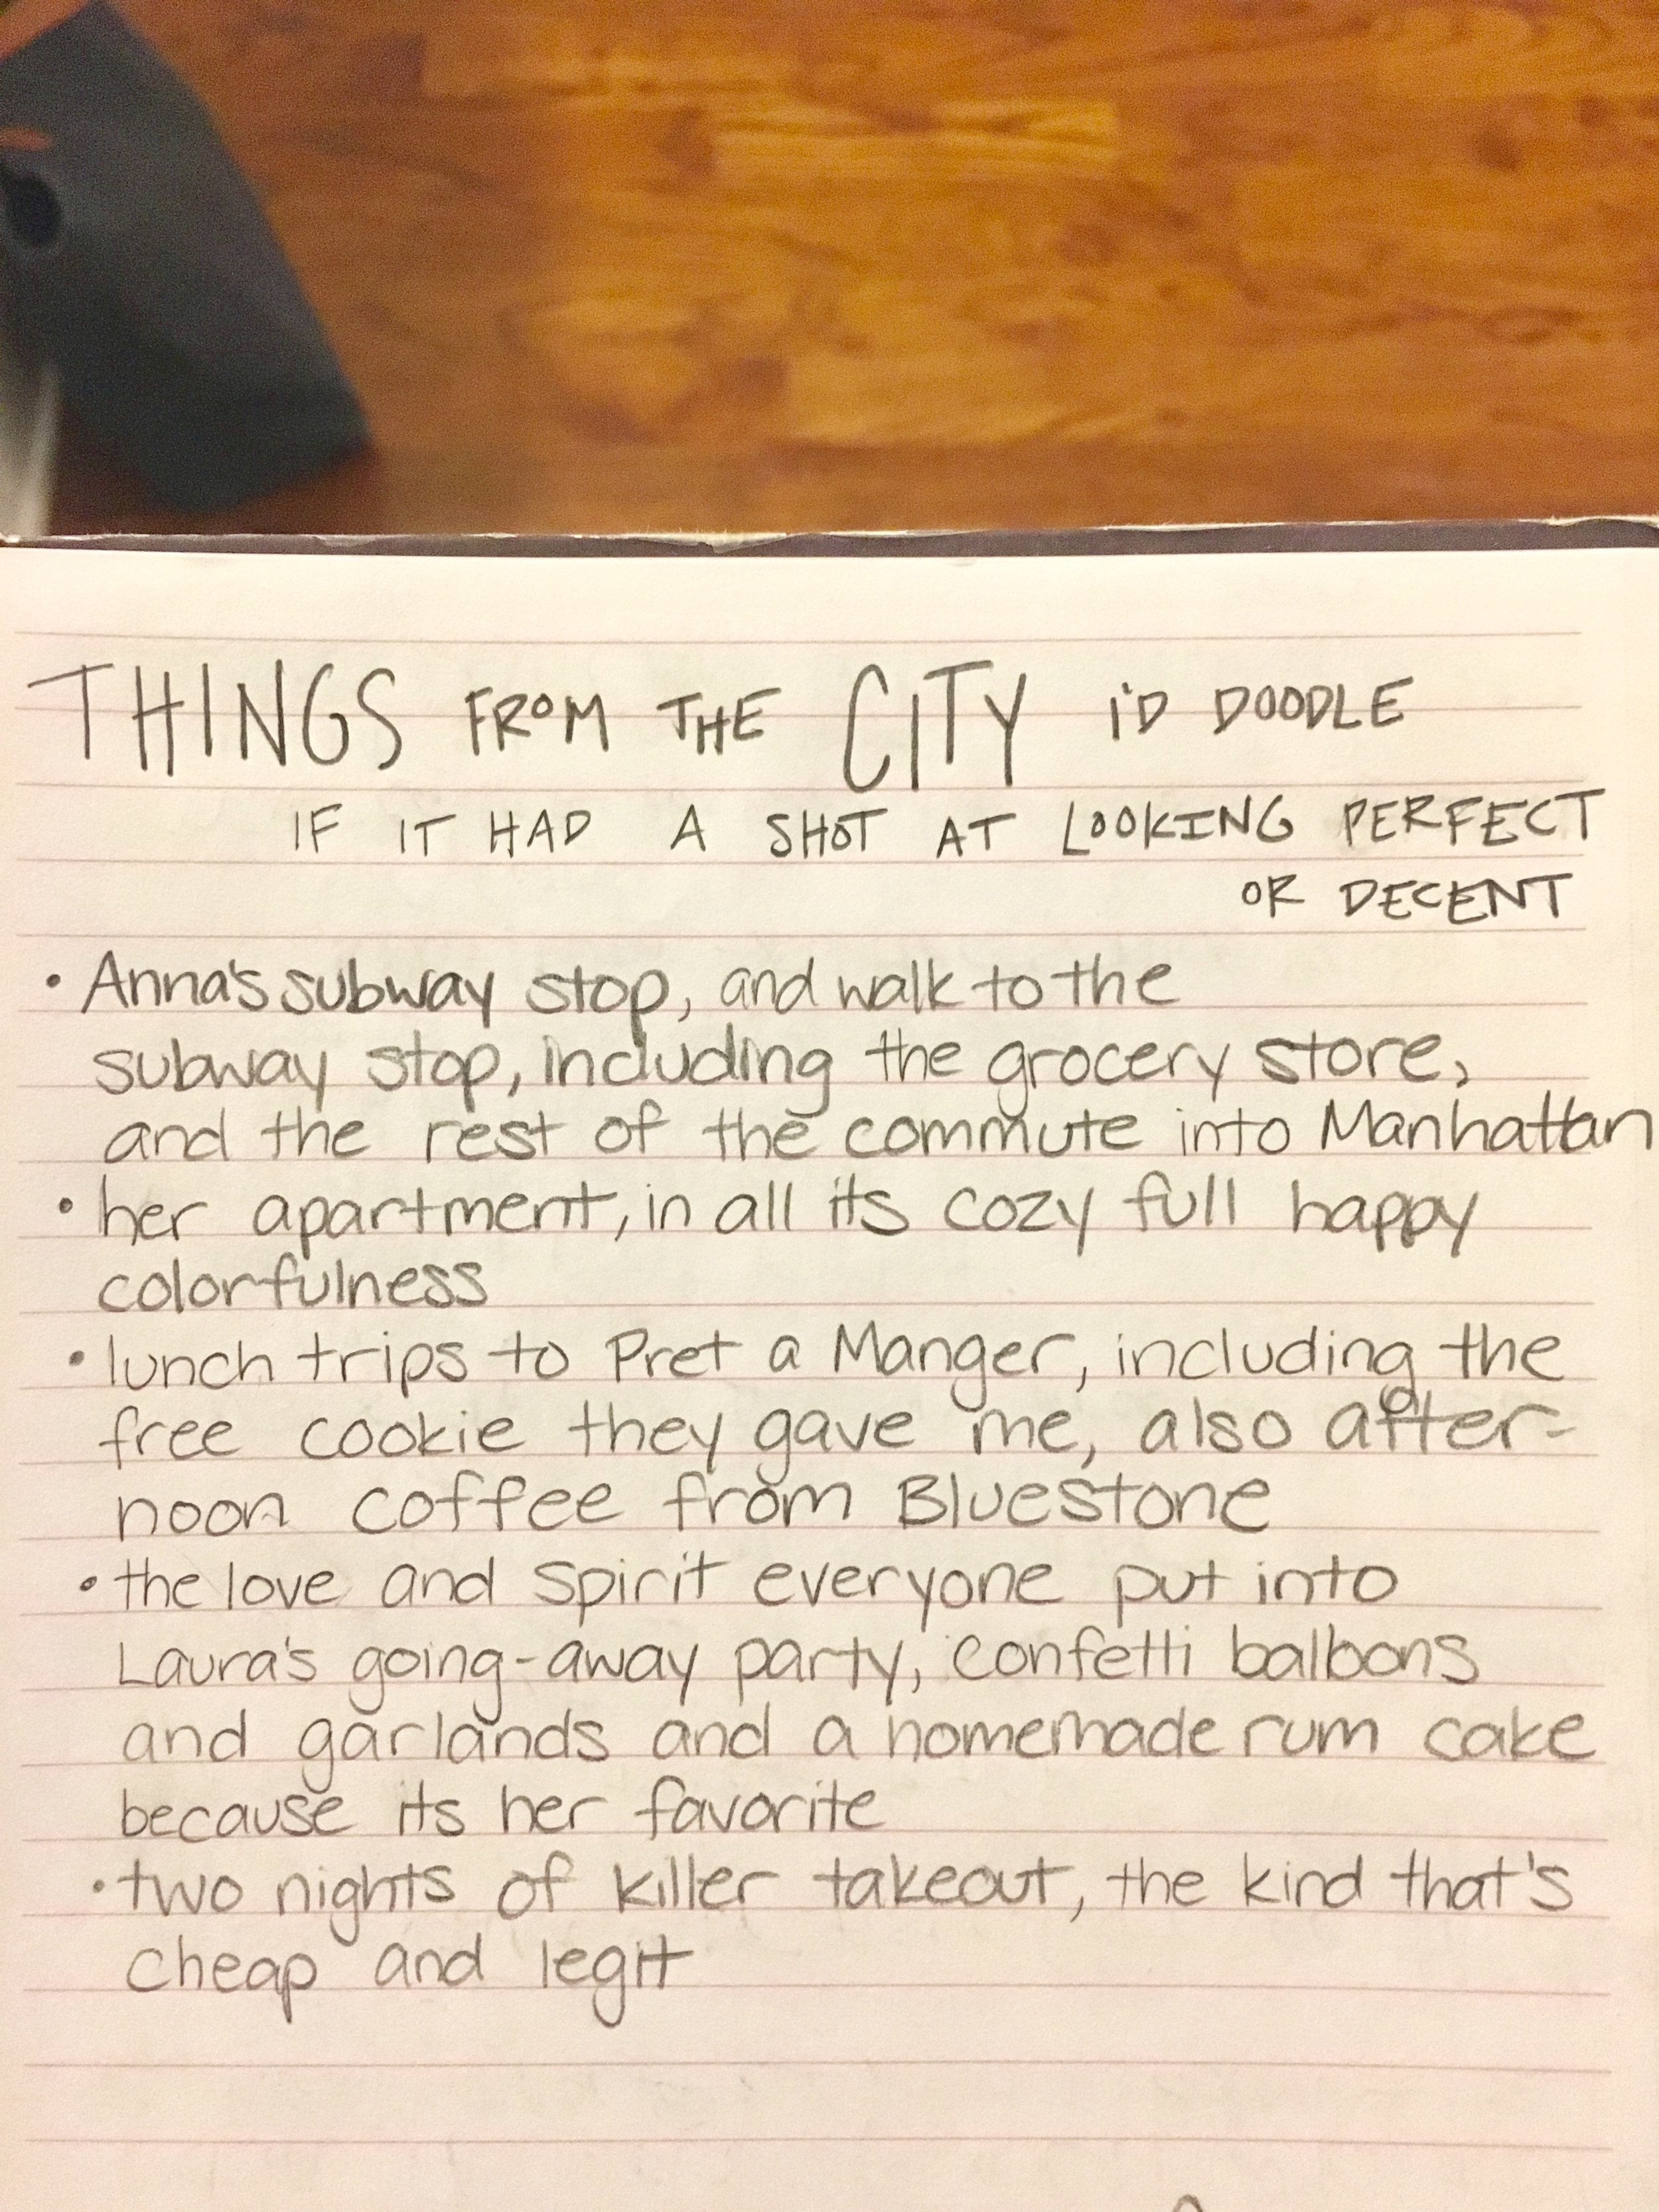 THINGS FROM THE CITY I'D DOODLE
IF IT HAD A SHOT AT LOOKING PERFECT
OR DECENT
• Anna's subway stop, and walk to the
subway stop, including the grocery store,
and the rest of the commute into Manhattan
• her apartment, in all its cozy full happy
colorfulness
• lunch trips to Pret a Manger, including the
free cookie they gave me, also after-
noon coffee from Bluestone
• the love and spirit everyone put into
Laura's going-away party, confetti balloons
and garlands and a homemade rum cake
because its her favorite
• two nights of killer takeout, the kind that's
cheap and legit